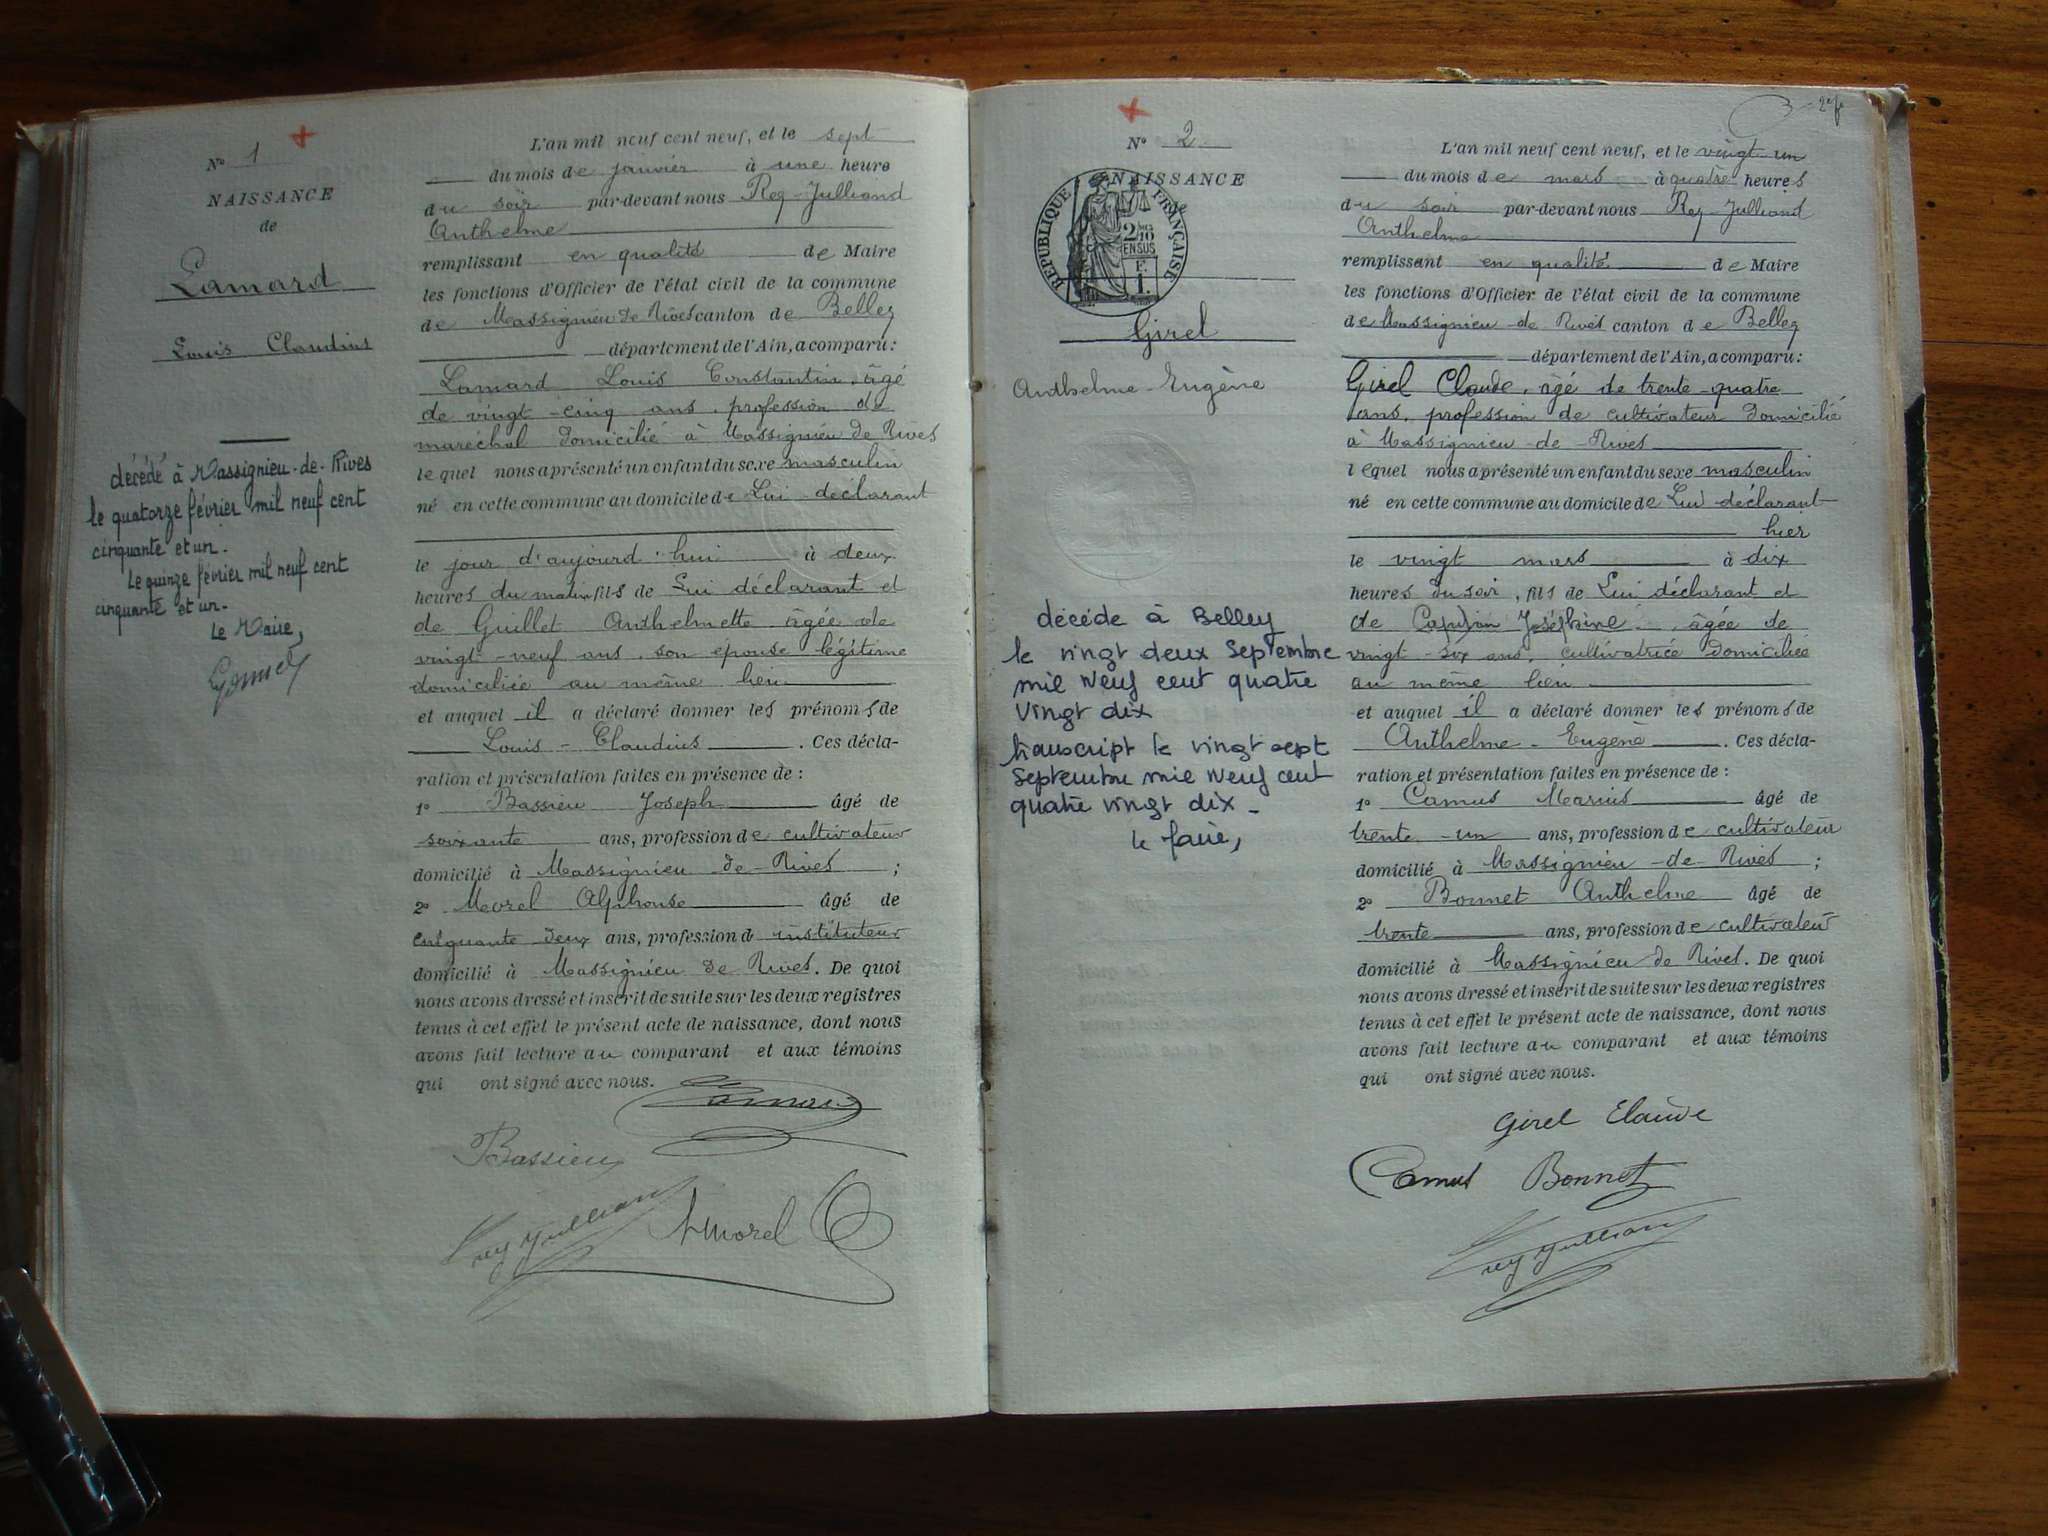 N° 1
NAISSANCE
de
Lamard
Louis Claudius
décédé à Massignieu-de-Rives
le quatorze février mil neuf cent
cinquante et un.
Le quinze février mil neuf cent
cinquante et un.
Le Maire,
L'an mil neuf cent neuf, et le sept
du mois de janvier à une heure
du soir par-devant nous Rey-Julliand
Anthelme
remplissant en qualité de Maire
les fonctions d'Officier de l'état civil de la commune
de Massignieu de Rives canton de Belley
département de l'Ain, a comparu :
Lamard Louis Constantin, âgé
de vingt-cinq ans, profession de
maréchal domicilié à Massignieu de Rives
lequel nous a présenté un enfant du sexe masculin
né en cette commune au domicile de Lui déclarant
le jour d'aujourd'hui à deux
heures du matin fils de Lui déclarant et
de Guillet Anthelmette âgée de
vingt-neuf ans, son épouse légitime
domiciliée au même lieu
et auquel il a déclaré donner les prénoms de
Louis-Claudius. Ces décla-
ration et présentation faites en présence de :
1° Bassieu Joseph âgé de
soixante ans, profession de cultivateur
domicilié à Massignieu de Rives ;
2° Morel Alphonse âgé de
cinquante deux ans, profession d' instituteur
domicilié à Massignieu de Rives. De quoi
nous avons dressé et inscrit de suite sur les deux registres
tenus à cet effet le présent acte de naissance, dont nous
avons fait lecture au comparant et aux témoins
qui ont signé avec nous.
Lamard
Bassieu
Rey Julliand AMorel
2e fo
N° 2
NAISSANCE
RÉPUBLIQUE FRANÇAISE
2/10
EN SUS
F.
1.
Girel
Anthelme Eugène
décédé à Belley
le vingt deux Septembre
mil neuf cent quatre
vingt dix
transcript le vingt sept
Septembre mil neuf cent
quatre vingt dix_
le Maire,
L'an mil neuf cent neuf, et le vingt un
du mois de mars à quatre heures
du soir par-devant nous Rey-Julliand
Anthelme
remplissant en qualité de Maire
les fonctions d'Officier de l'état civil de la commune
de Massignieu-de Rives canton de Belley
département de l'Ain, a comparu :
Girel Claude, âgé de trente-quatre
ans, profession de cultivateur domicilié
à Massignieu-de-Rives
lequel nous a présenté un enfant du sexe masculin
né en cette commune au domicile de Lui déclarant
hier
le vingt mars à dix
heures du soir, fils de Lui déclarant et
de Joséphine âgée de
vingt-six ans, cultivatrice domiciliée
au même lieu
et auquel il a déclaré donner les prénoms de
Anthelme-Eugène. Ces décla-
ration et présentation faites en présence de :
1° Camus Marius âgé de
trente-un ans, profession de cultivateur
domicilié à Massignieu-de-Rives ;
2° Bonnet Anthelme âgé de
trente ans, profession de cultivateur
domicilié à Massignieu de Rives. De quoi
nous avons dressé et inscrit de suite sur les deux registres
tenus à cet effet le présent acte de naissance, dont nous
avons fait lecture au comparant et aux témoins
qui ont signé avec nous.
Girel Claude
Camus Bonnet
Rey Julliand